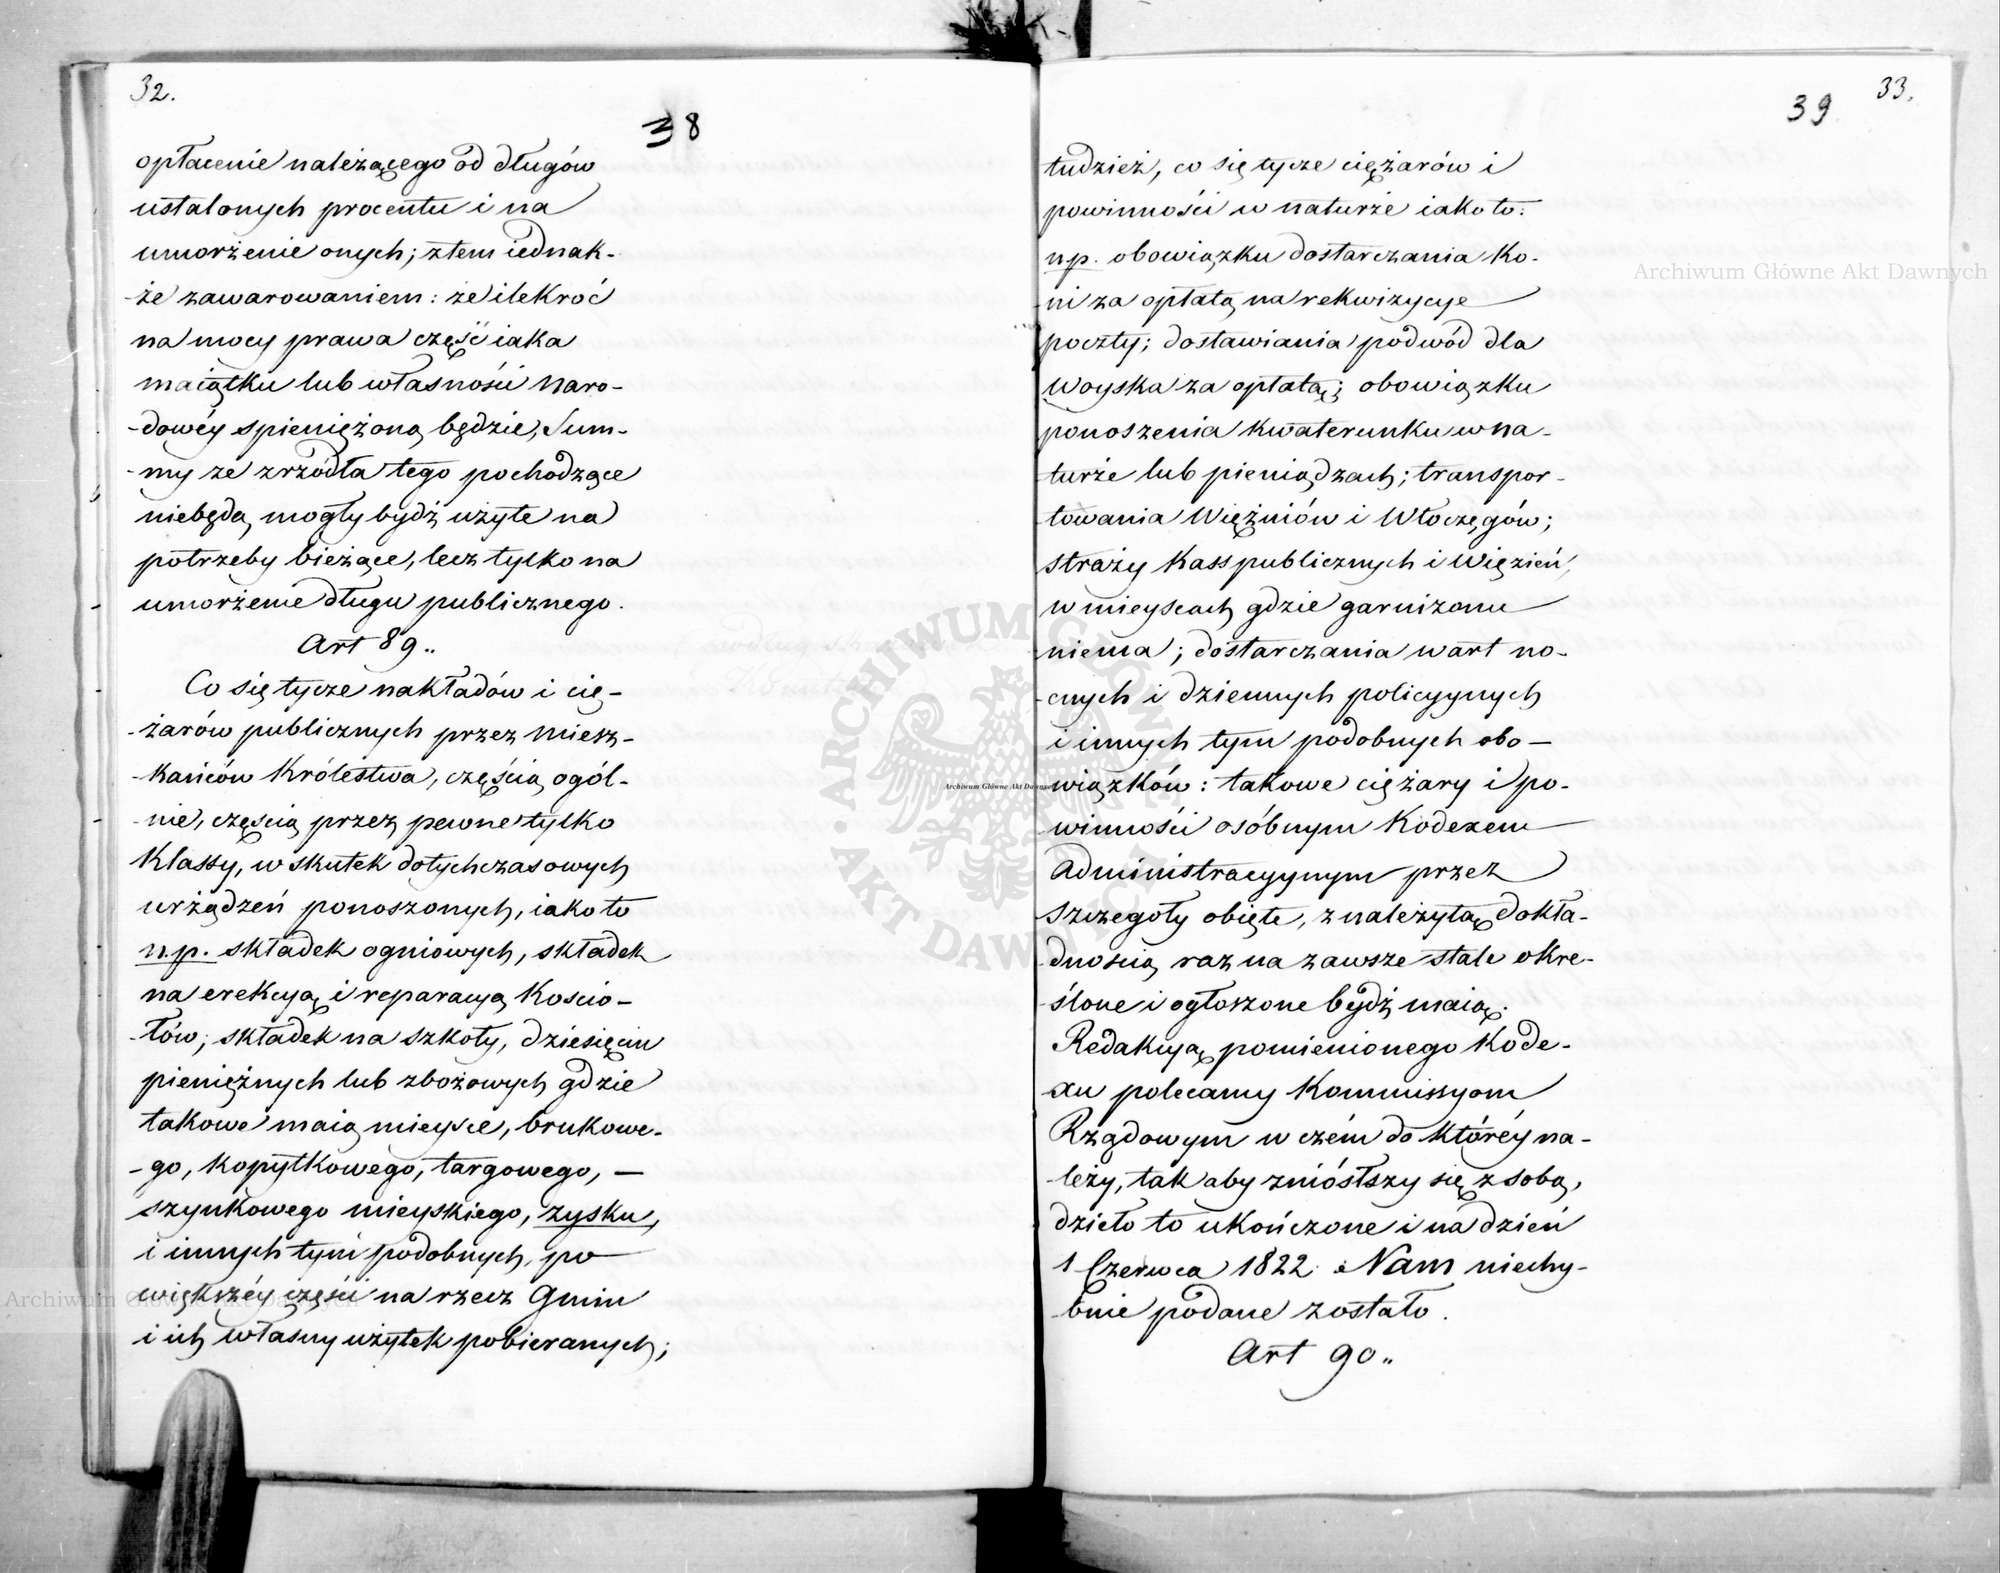 32.
38
opłacenie należącego od długów
ustalonych procentu i na
umorżenie onych; ztem iednak-
-że zawarowaniem: że ilekroć
na mocy prawa część iaka
maiątku lub własności Naro-
-dowéy spieniężoną będzie, Sum-
-my ze zrzódła tego pochodzące
niebędą mogły bydź użyte na
potrzeby bieżące, lecz tylko na
umorżenie długu publicznego.
Art 89..
Co się tycze nakładów i cię-
-żarów publicznych przez miesz-
-kańców Królestwa, częścią ogól-
-nie, częścią przez pewne tylko
Klassy, w skutek dotychczasowych
urżądzeń ponoszonych, iako to
n.p. składek ogniowych, składek
na erekcyą i reparacyą Kościo-
-łów; składek na szkoły, dziesięcin
pieniężnych lub zbożowych gdzie
takowe maią mieysce, brukowe-
-go, kopytkowego, targowego, —
szynkowego mieyskiego, zysku,
i innych tym podobnych, po
większéy części na rzecz Gmin
i ich własny użytek pobieranych;
33.
39
tudzież, co się tycze ciężarów i
powinności w naturże iako to:
n.p. obowiązku dostarczania Ko-
-ni za opłatą na rekwizycye
poczty; dostawiania podwód dla
Woyska za opłatą; obowiązku
ponoszenia Kwaterunku w na-
-turże lub pieniądzach; transpor-
-towania Więźniów i Włoczęgów;
straży Kass publicznych i Więzień,
w mieyscach gdzie garnizonu
niema; dostarczania wart no-
-cnych i dziennych policyynych
i innych tym podobnych obo-
-wiązków: takowe ciężary i po-
-winności osóbnym Kodexem
Administracyynym przez
szczegoły obięte, z należytą dokła-
-dnością raz na zawsze stale okre-
-ślone i ogłoszone bydź maią.
Redakcyą pomienionego Kode-
-xu polecamy Kommissyom
Rządowym w czém do któréy na-
-leży, tak aby zniósłszy się z sobą,
dzieło to ukończone i na dzień
1 Czerwca 1822 Nam niechy-
-bnie podane zostało.
Art 90..
Archiwum Główne Akt Dawnych
Archiwum Główne Akt Dawnych
Archiwum Główne Akt Dawnych
ARCHIWUM GŁÓWNE
AKT DAWNYCH